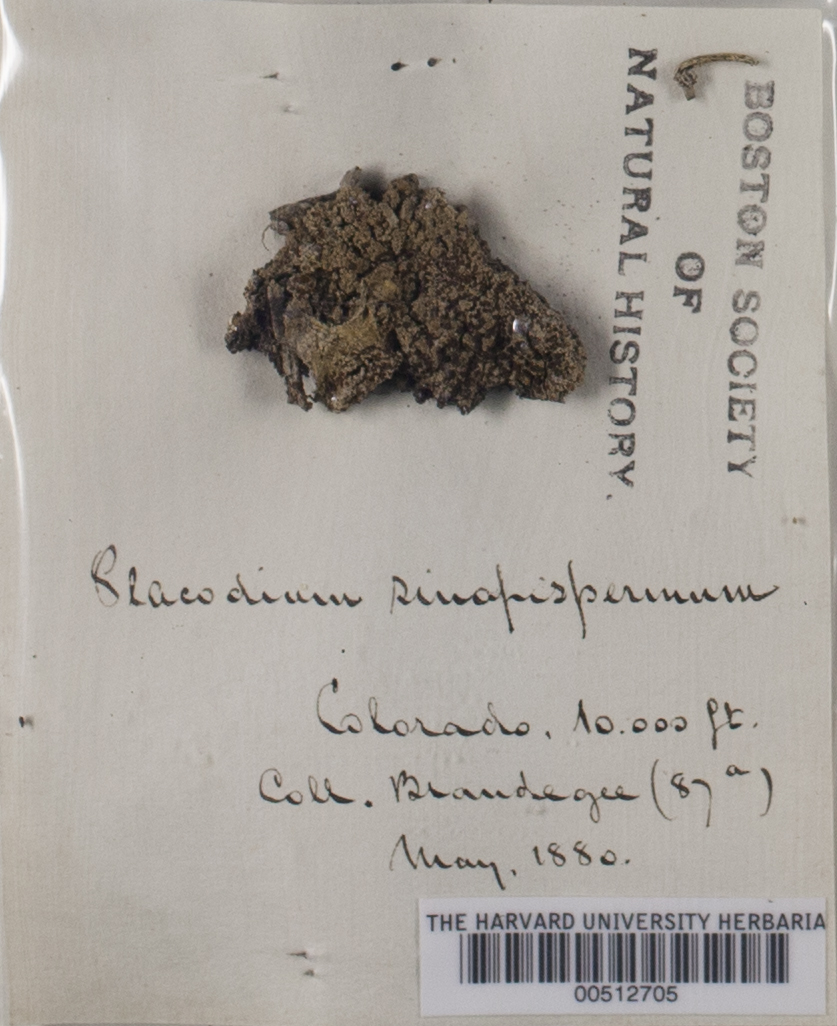 BOSTON SOCIETY
OF
NATURAL HISTORY.
Placodium sinapispermum
Colorado. 10.000 ft.
Coll. Brandegee (87 a)
May, 1880.
THE HARVARD UNIVERSITY HERBARIA
00512705